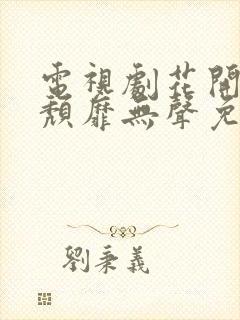 電視劇花開
頹靡無聲免
劉秉義